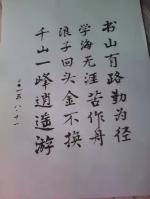 书山有路勤为径
学海无涯苦作舟
浪子回头金不换
千山一峰逍遥游